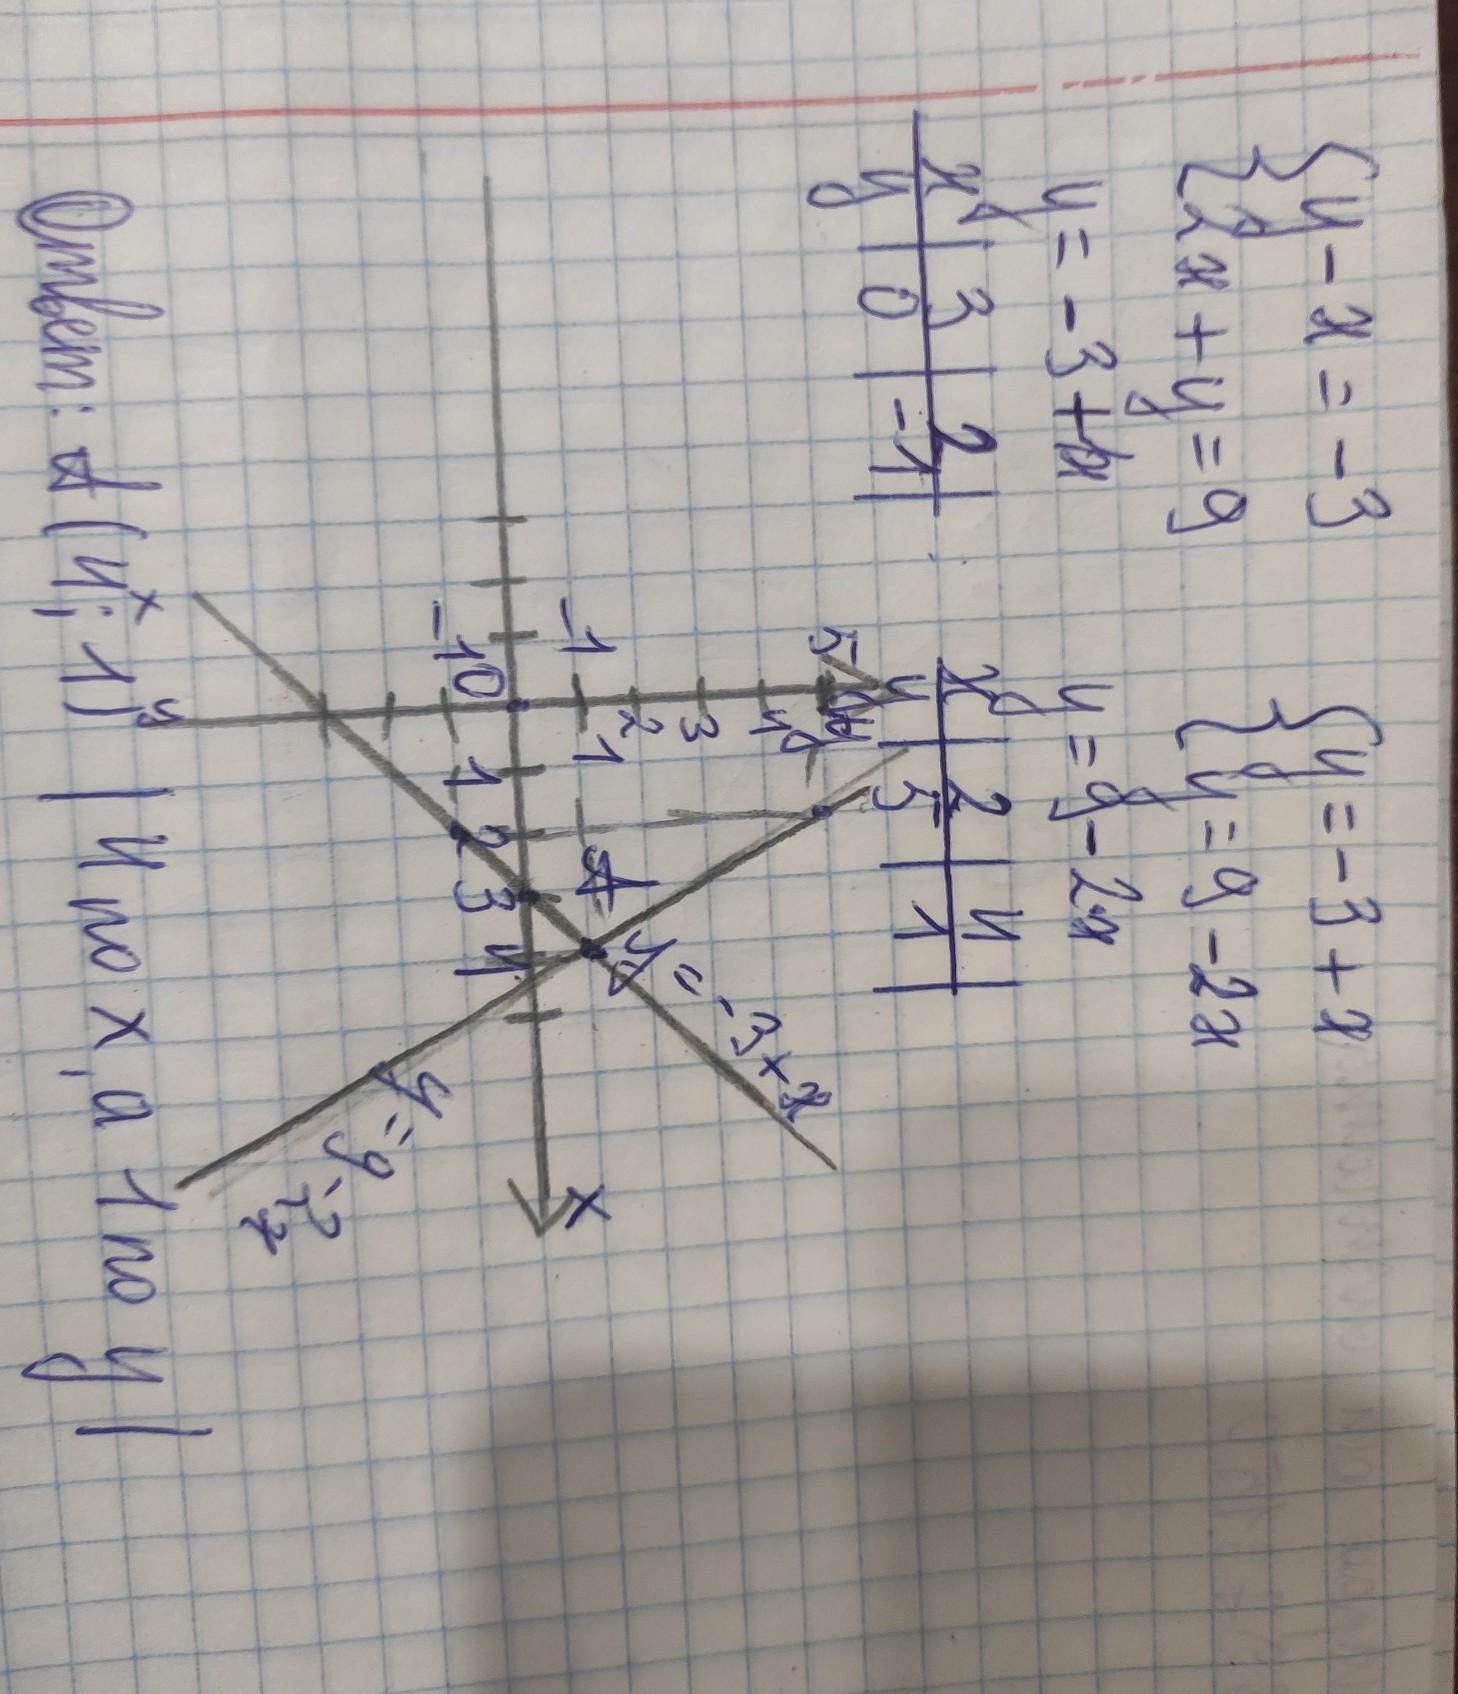 {y - x = -3
{2x + y = 9
{y = -3 + x
{y = 9 - 2x
y = -3 + x
y = 9 - 2x
x | 3 | 2
y | 0 | -1
x | 2 | 4
y | 5 | 1
5
4
3
2
1
-1
-1 0 1 2 3 4
A
x
y = -3 + x
y = 9 - 2x
Ответ: A (4; 1) | 4 по x, а 1 по y |
x y